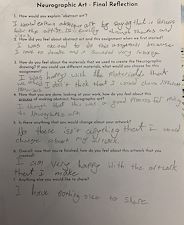 Neurographic Art - Final Reflection
1. How would you explain "abstract art"?
I would explain abstract art by saying that is showing
how the artist is feeling through shapes and
2. How did you feel about abstract art when this assignment was first started?
I was excited to do this
3. How do you feel about the materials that were used to create the Neurographic
drawing? If you could use different materials, what would you choose for this
assignment?
I was happy with the materials that
we used I don't think that I would chose different
materials
4. Now that you're done, looking at your work, how do you feel about this
process of making abstract art?
I think that this was a good process for making
5. Is there anything that you would change about your artwork?
No there isn't anything that I would
change about my artwork.
6. Overall now that you're finished, how do you feel about this artwork that you
created?
I am very happy with the artwork
that I made
7. Anything else you would like to share?
I have nothing else to share